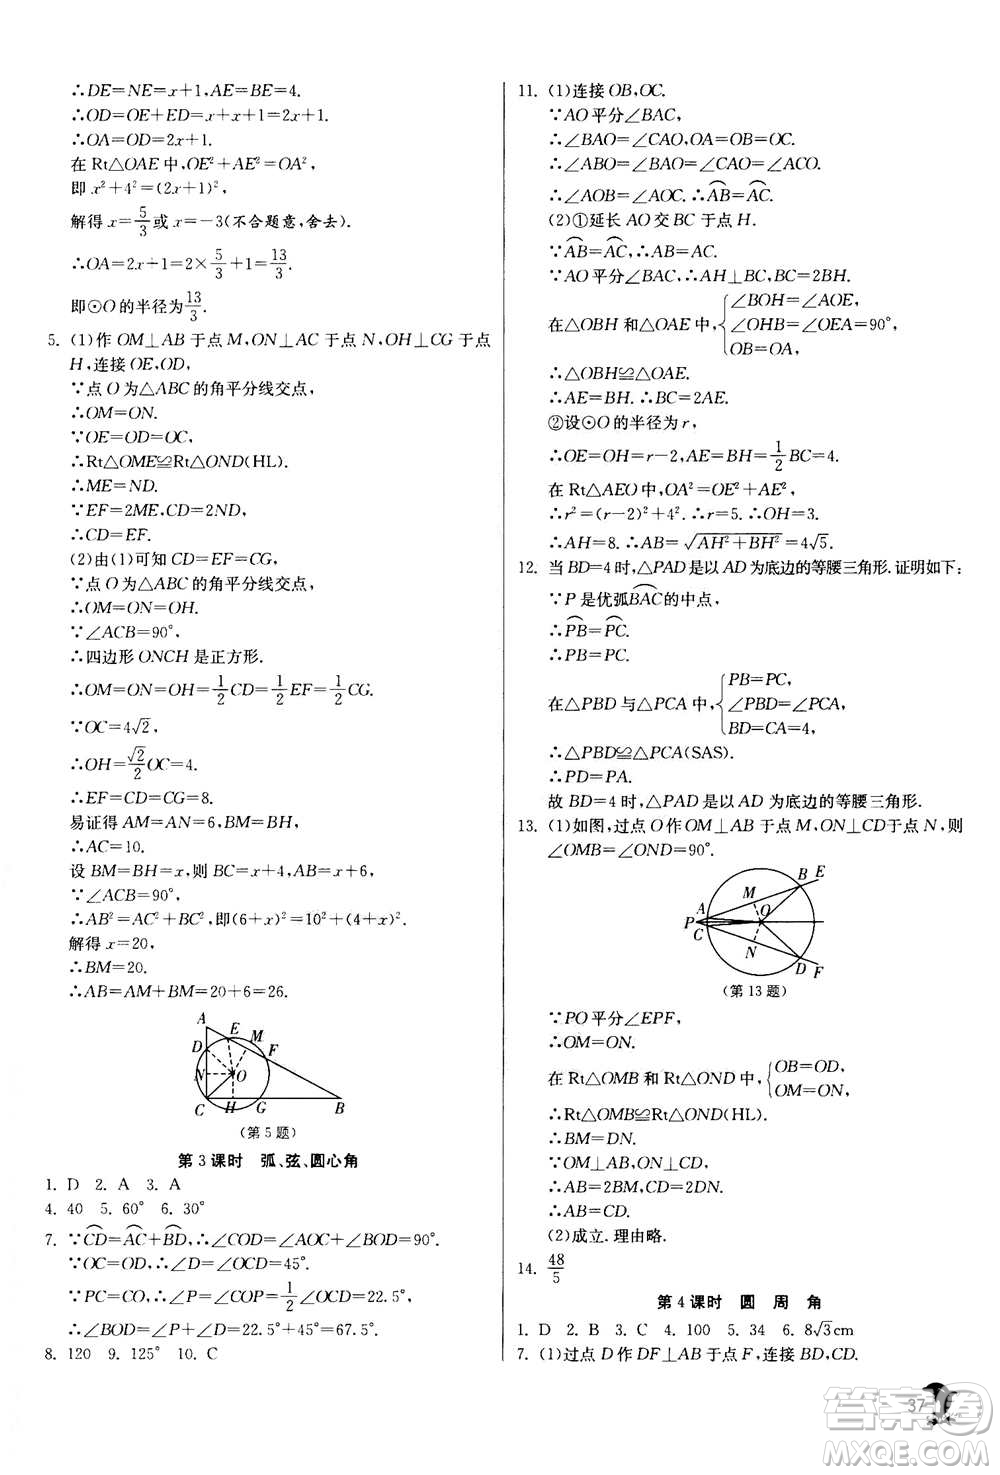 ∴DE=NE=x+1,AE=BE=4.
∴OD=OE+ED=x+x+1=2x+1.
∴OA=OD=2x+1.
在 Rt△OAE 中,OE²+AE²=OA²,
即 x²+4²=(2x+1)²,
解得 x=5/3或 x=-3(不合题意,舍去).
∴OA=2x+1=2×5/3+1=13/3.
即⊙O 的半径为13/3.
5. (1)作 OM⊥AB 于点 M,ON⊥AC 于点 N,OH⊥CG 于点
H,连接 OE,OD,
∵点 O 为△ABC 的角平分线交点,
∴OM=ON.
∵OE=OD=OC,
∴Rt△OME≌Rt△OND(HL).
∴ME=ND.
∵EF=2ME,CD=2ND,
∴CD=EF.
(2)由(1)可知 CD=EF=CG,
∵点 O 为△ABC 的角平分线交点,
∴OM=ON=OH.
∵∠ACB=90°,
∴四边形 ONCH 是正方形.
∴OM=ON=OH=1/2CD=1/2EF=1/2CG.
∵OC=4√2,
∴OH=√2/2OC=4.
∴EF=CD=CG=8.
易证得 AM=AN=6,BM=BH,
∴AC=10.
设 BM=BH=x,则 BC=x+4,AB=x+6,
∵∠ACB=90°,
∴AB²=AC²+BC²,即(6+x)²=10²+(4+x)²,
解得 x=20,
∴BM=20.
∴AB=AM+BM=20+6=26.
A
D
E
M
F
N
O
C
H
G
B
(第 5 题)
第 3 课时 弧、弦、圆心角
1. D 2. A 3. A
4. 40 5. 60° 6. 30°
7. ∵⌒CD=⌒AC+⌒BD,∴∠COD=∠AOC+∠BOD=90°.
∵OC=OD,∴∠D=∠OCD=45°.
∵PC=CO,∴∠P=∠COP=1/2∠OCD=22.5°.
∴∠BOD=∠P+∠D=22.5°+45°=67.5°.
8. 120 9. 125° 10. C
11. (1)连接 OB,OC.
∵AO 平分∠BAC,
∴∠BAO=∠CAO,OA=OB=OC.
∴∠ABO=∠BAO=∠CAO=∠ACO.
∴∠AOB=∠AOC.∴⌒AB=⌒AC.
(2)①延长 AO 交 BC 于点 H.
∵⌒AB=⌒AC,∴AB=AC.
∵AO 平分∠BAC,∴AH⊥BC,BC=2BH.
在△OBH 和△OAE 中,{∠BOH=∠AOE,
∠OHB=∠OEA=90°,
OB=OA,
∴△OBH≌△OAE.
∴AE=BH.∴BC=2AE.
②设⊙O 的半径为 r,
∴OE=OH=r-2,AE=BH=1/2BC=4.
在 Rt△AEO 中,OA²=OE²+AE²,
∴r²=(r-2)²+4².∴r=5.∴OH=3.
∴AH=8.∴AB=√(AH²+BH²)=4√5.
12. 当 BD=4 时,△PAD 是以 AD 为底边的等腰三角形.证明如下:
∵P 是优弧⌒BAC的中点,
∴⌒PB=⌒PC.
∴PB=PC.
在△PBD 与△PCA 中,{PB=PC,
∠PBD=∠PCA,
BD=CA=4,
∴△PBD≌△PCA(SAS).
∴PD=PA.
故 BD=4 时,△PAD 是以 AD 为底边的等腰三角形.
13. (1)如图,过点 O 作 OM⊥AB 于点 M,ON⊥CD于点 N,则
∠OMB=∠OND=90°.
B
E
M
A
O
P
C
N
D
F
(第 13 题)
∵PO 平分∠EPF,
∴OM=ON.
在 Rt△OMB 和 Rt△OND 中,{OB=OD,
OM=ON,
∴Rt△OMB≌Rt△OND(HL).
∴BM=DN.
∵OM⊥AB,ON⊥CD,
∴AB=2BM,CD=2DN,
∴AB=CD.
(2)成立.理由略.
14. 48/5
第 4 课时 圆 周 角
1. D 2. B 3. C 4. 100 5. 34 6. 8√3cm
7. (1)过点 D 作 DF⊥AB 于点 F,连接 BD,CD.
37
答案圈
MXQE.COM